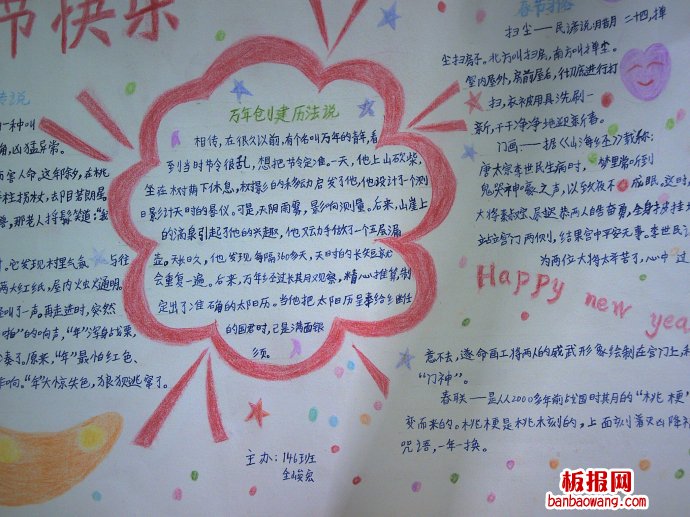 节快乐
传说
一种叫
角,凶猛异常。
害人命。这年除夕,在桃
手拄拐杖,目若朗星
,那老人捋髯笑道:
它发现村里气氛与往
两大红纸,屋内火烛通明。
怪叫了一声。再走进时,突然
啪"的响声,"年"浑身战栗,
凑了。原来,"年"最怕红色、
炸响。"年"大惊失色,狼狈逃窜了。
万年创建历法说
相传,在很久以前,有个名叫万年的青年,看
到当时节令很乱,想把节令定准。一天,他上山砍柴,
坐在树荫下休息,树影的移动启发了他,他设计了个测
日影计天时的晷仪。可是,天阴雨雾,影响测量。后来,山崖上
的滴泉引起了他的兴趣,他又动手做了一个五层漏
壶。天长日久,他发现每隔360多天,天时的长短
会重复一遍。后来,万年经过长期观察,精心推算,制
定出了准确的太阳历。当他把太阳历呈奉给继任
的国君时,已是满面银
须。
主办:146班
春节习俗
扫尘——民谚说 二十四,掸
尘扫房子。北方叫扫房,南方叫掸尘。
室内屋外,房前屋后,彻底进行打
扫,衣被用具洗刷一
新,干干净净地迎新春。
门画——据《山海经》载称:
唐太宗李世民生病时,梦里常听到
鬼哭神嚎之声,以致夜不成眠。这时,
大将秦叔宝、尉迟恭两人自告奋勇,全身披挂
站立宫门两侧,结果宫中平安无事。李世民
为两位大将太辛苦了,心中过
Happy new yea
意不去,遂命画工将两人的威武形象绘制在宫门上
"门神"。
春联——是从2000多年前战国时期的"桃梗"
变而来的。桃梗是桃木刻的,上面刻着灭凶除
咒语,一年一换。
板报网
banbaowang.com